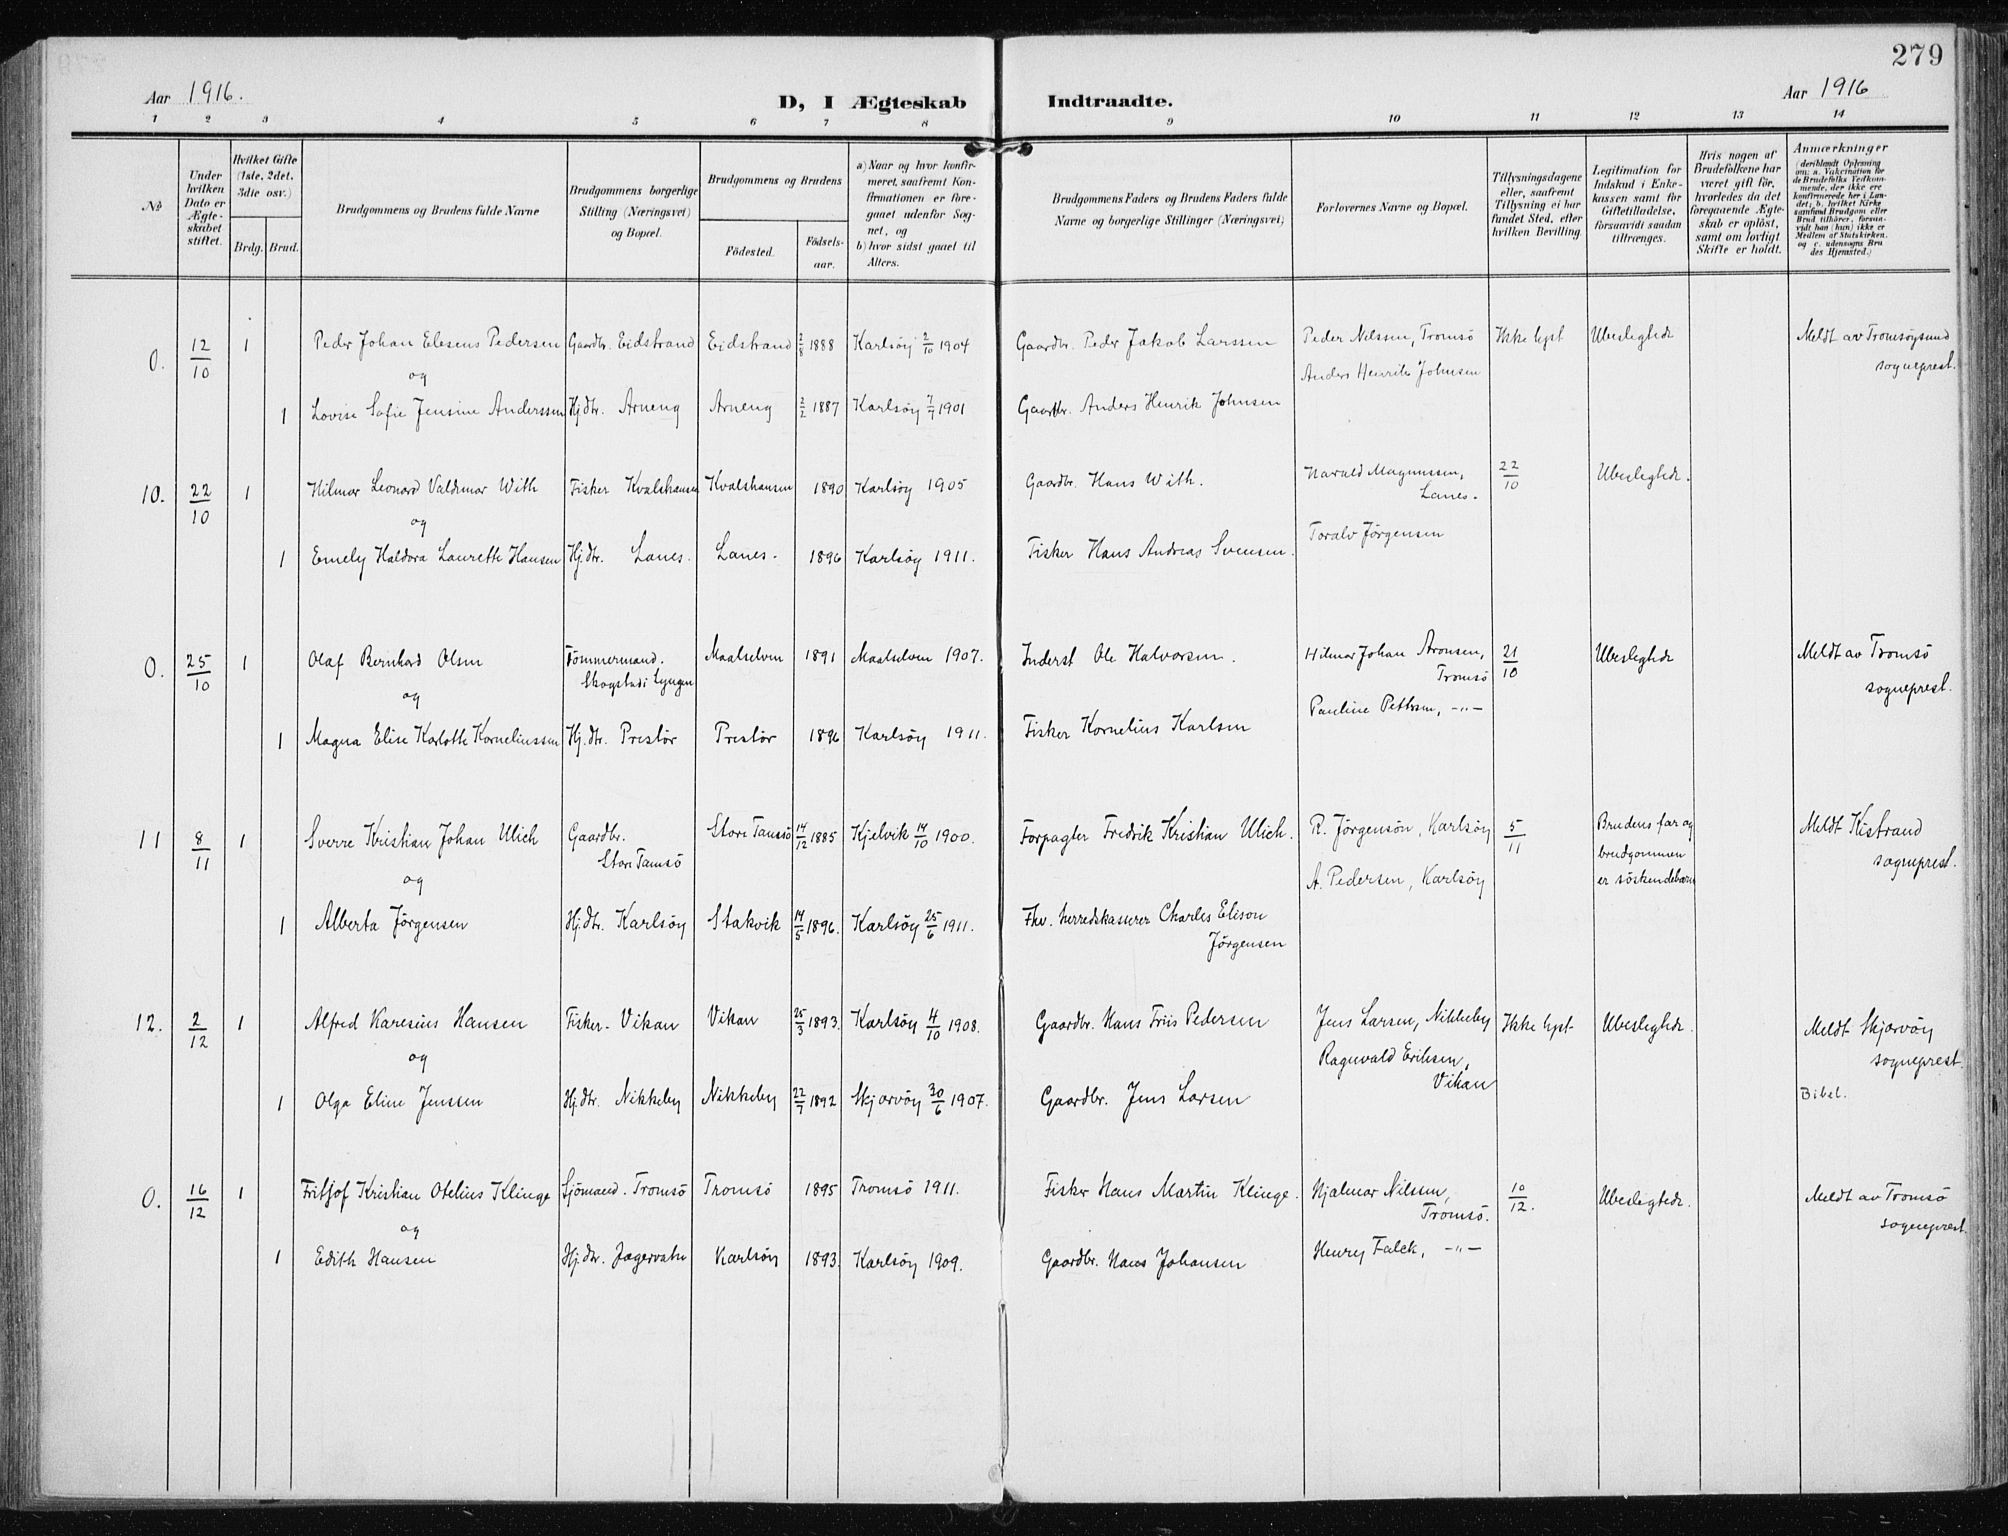 279
Aar 1916.
D, I Ægteskab Indtraadte.
Aar 1916
1 2 3 4 5 6 7 8 9 10 11 12 13 14
No
Under hvilken Dato er Ægteskabet stiftet.
Hvilket Gifte (1ste, 2det, 3die osv.)
Brdg. Brud.
Brudgommens og Brudens fulde Navne
Brudgommens borgerlige Stilling (Næringsvei) og Bopæl.
Brudgommens og Brudens
Födested.
Födselsaar.
a) Naar og hvor konfirmeret, saafremt Konfirmationen er foregaaet udenfor Sognet, og
b) hvor sidst gaaet til Alters.
Brudgommens Faders og Brudens Faders fulde Navne og borgerlige Stillinger (Næringsvei)
Forlovernes Navne og Bopæl.
Tillysningsdagene eller, saafremt Tillysning ei har fundet Sted, efter hvilken Bevilling.
Legitimation for Indskud i Enkekassen samt for Giftetilladelse, forsaavidt saadan tiltrænges.
Hvis nogen af Brudefolkene har været gift för, hvorledes da det foregaaende Ægteskab er oplöst, samt om lovligt Skifte er holdt.
Anmærkninger
(deriblandt Oplysning om: a. Vakcination for de Brudefolks Vedkommende, der ikke ere konfirmerede her i Landet; b. hvilket Kirkesamfund Brudgom eller Brud tilhörer, forsaavidt han (hun) ikke er Medlem af Statskirken, og c. udensogns Brudes Hjemsted.)
0. 12/10 1 Peder Johan Elesens Pedersen Gaardbr. Eidstrand Eidstrand 2/8 1888 Karlsöy 2/10 1904 Gaardbr. Peder Jakob Larssen Peder Nilssen, Tromsö Ikke lyst Ubeslegtede Meldt av Tromsöysund
og Anders Henrik Johnsen sogneprest.
1 Lovise Sofie Jensine Anderssen Hj.dtr. Arneng Arneng 2/2 1887 Karlsöy 7/7 1901 Gaardbr. Anders Henrik Johnsen
10. 22/10 1 Hilmar Leonard Valdimar With Fisker Kvalshausen Kvalshausen 1890 Karlsöy 1905 Gaardbr. Hans With. Harald Magnussen, 22/10 Ubeslegtede.
og Lanes.
1 Emely Haldora Laurette Hansen Hj.dtr. Lanes. Lanes. 1896 Karlsöy 1911. Fisker Hans Andreas Svensen. Toralv Jörgensen
0. 25/10 1 Olaf Bernhard Olsen Tömmermand. Maalselven 1891 Maalselven 1907. Inderst Ole Halvorsen. Hilmar Johan Aronsen, 21/10 Ubeslegtede Meldt av Tromsö
og Skogstad i Lyngen Tromsö sogneprest.
1 Magna Elise Karlotte Korneliussen Hj.dtr. Prestör Prestör 1896 Karlsöy 1911. Fisker Kornelius Karlsen Pauline Pettersen, -"-
11 8/11 1 Sverre Kristian Johan Ulich Gaardbr. Store Tamsö 14/12 1885 Kjelvik 14/10 1900. Forpagter Fredrik Kristian Ulich. R. Jörgensön, Karlsöy 5/11 Brudens far og Meldt Kistrand
Store Tamsö brudgommen sogneprest.
og A. Pedersen, Karlsöy er söskendebarn
1 Alberta Jörgensen Hj.dtr. Karlsöy Stakvik 14/5 1896. Karlsöy 25/6 1911. Fhv. herredskasserer Charles Elison
Jörgensen
12. 2/12 1 Alfred Karesius Hansen Fisker. Vikan Vikan 25/3 1893. Karlsöy 4/10 1908. Gaardbr. Hans Friis Pedersen Jens Larsen, Nikkeby Ikke lyst Ubeslegtede. Meldt Skjærvöy
og Ragnvald Eriksen, sogneprest.
Vikan
1 Olga Eline Jenssen Hj.dtr. Nikkeby Nikkeby 22/7 1892 Skjærvöy 30/6 1907. Gaardbr. Jens Larsen Bibel.
0. 16/12 1 Fritjof Kristian Otelius Klinge Sjömand. Tromsö Tromsö 1895 Tromsö 1911. Fisker Hans Martin Klinge. Hjalmar Nilssen, 10/12. Ubeslegtede. Meldt av Tromsö
og Tromsö. sogneprest.
1 Edith Hansen Hj.dtr. Jægervatn Karlsöy 1893. Karlsöy 1909. Gaardbr. Hans Johansen Henry Falck, -"-